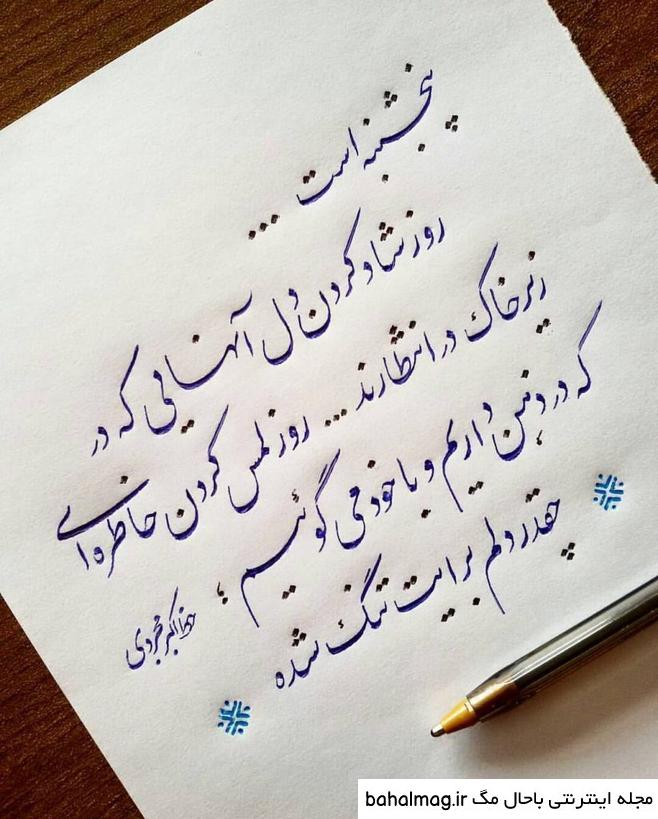 پنجشنبه است ...
روز شاد کردن دل آنهایی که در
زیر خاک در انتظارند... روز لمس کردن خاطره ای
که در ذهن داریم و با خود می گوئیم ؛
چقدر دلم برایت تنگ شده
اکبر
مجله اینترنتی باحال مگ bahalmag.ir